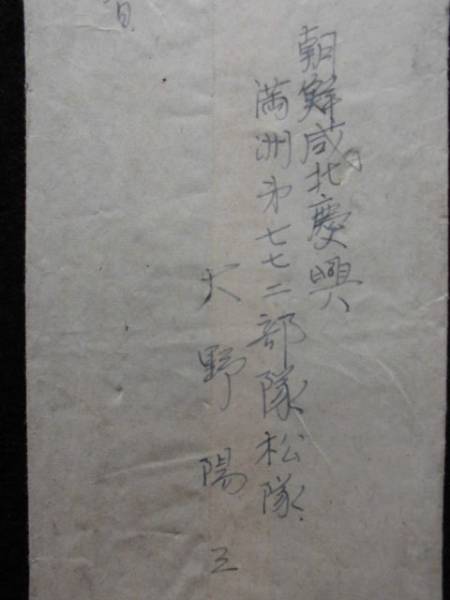 朝鮮咸北慶興
満洲第七七二部隊松隊
大野陽三